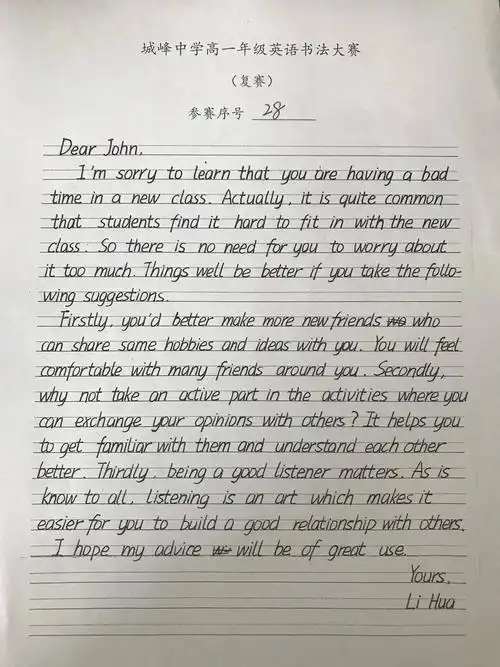 城峰中学高一年级英语书法大赛
（复赛）
参赛序号 28
Dear John,
I'm sorry to learn that you are having a bad
time in a new class. Actually, it is quite common
that students find it hard to fit in with the new
class. So there is no need for you to worry about
it too much. Things well be better if you take the follo-
wing suggestions.
Firstly, you'd better make more new friends who
can share same hobbies and ideas with you. You will feel
comfortable with many friends around you. Secondly,
why not take an active part in the activities where you
can exchange your opinions with others? It helps you
to get familiar with them and understand each other
better. Thirdly, being a good listener matters. As is
know to all, listening is an art which makes it
easier for you to build a good relationship with others.
I hope my advice will be of great use.
Yours,
Li Hua